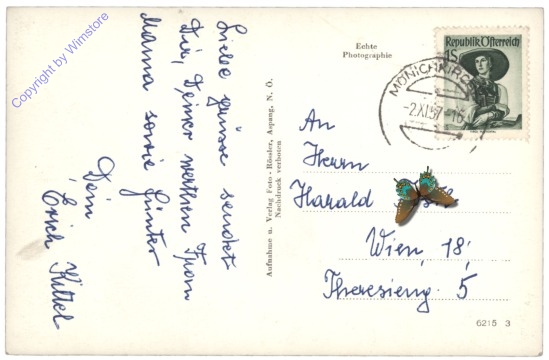 Copyright by Wimstore
Liebe Grüsse sendet
Dir, Deiner werthen Frau
Mama sowie Günter
Dein
Erich Kittel
Echte
Photographie
Aufnahme u. Verlag Foto - Rössler, Aspang, N. Ö.
Nachdruck verboten
1S
Republik Österreich
MÖNICHKIRCH
-2.XI.57-16
An
Herrn
Harald
Wien, 18,
Theresieng. 5
6215 3